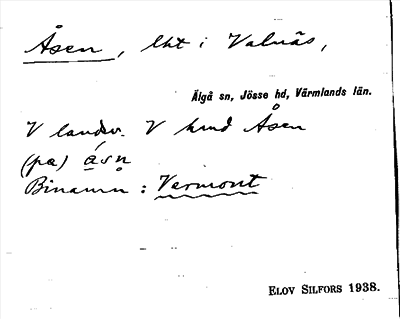 Åsen, lht i Valnäs,
Älgå sn, Jösse hd, Värmlands län.
V landsv. V Åsen
(pa) ásn̥
Binamn : Vermont
ELOV SILFORS 1938.